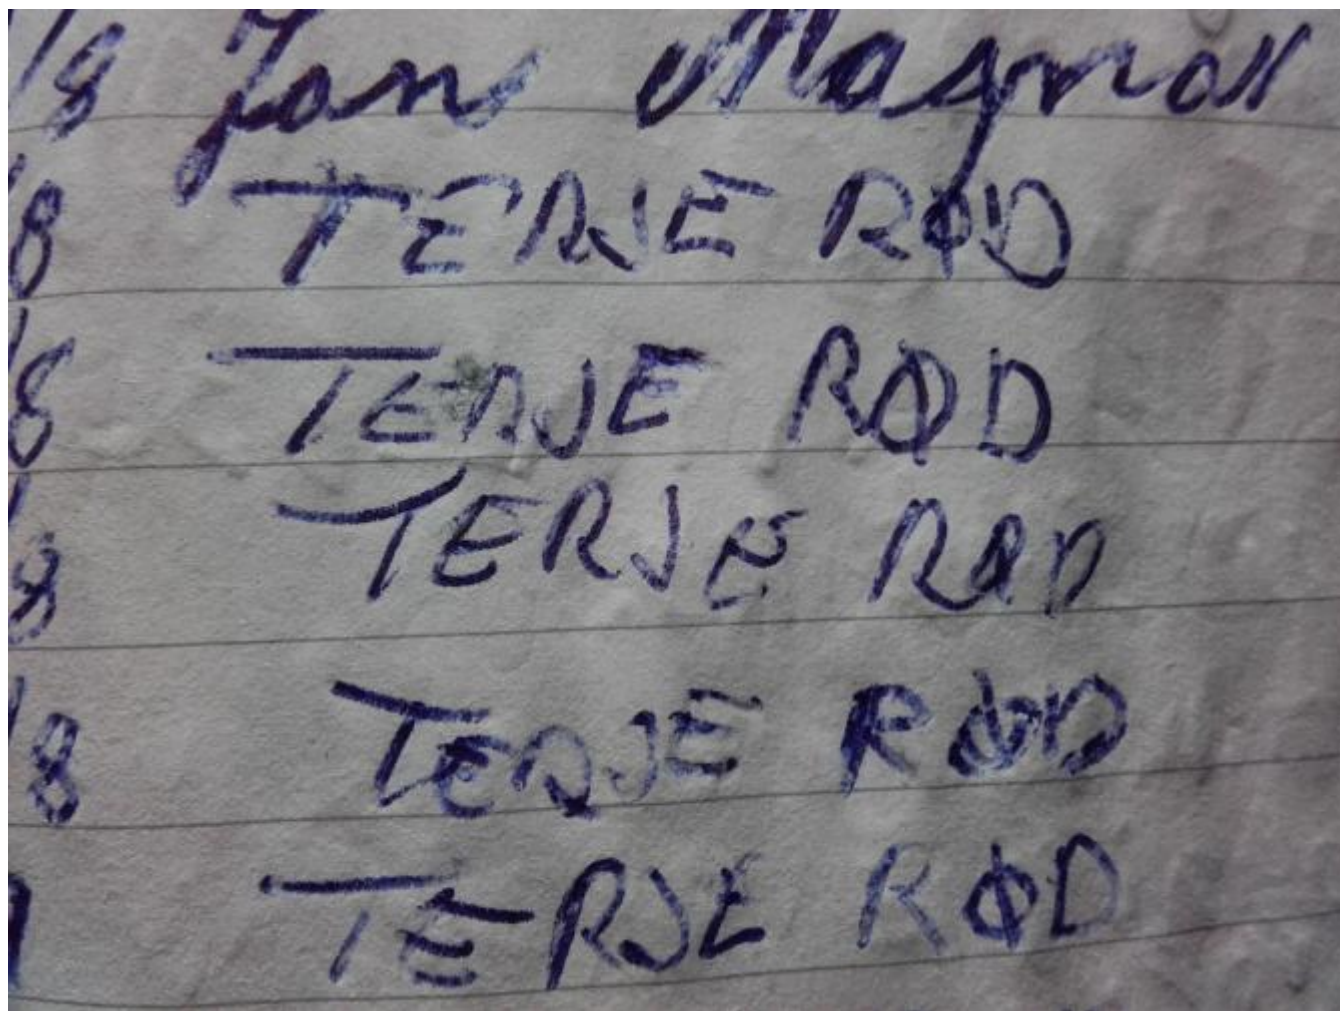 /8 Jan Magnar
/8 TERJE RØD
/8 TERJE RØD
/8 TERJE RØD
/8 TERJE RØD
TERJE RØD